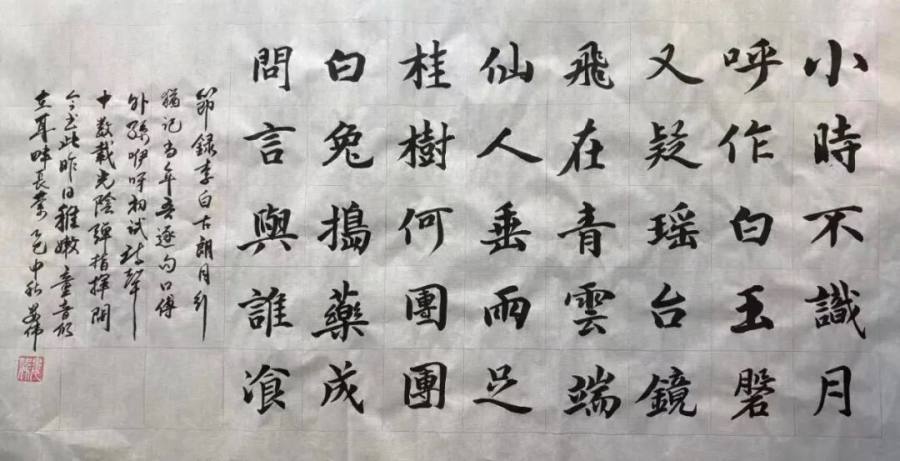 小時不識月
呼作白玉磐
又疑瑶台鏡
飛在青雲端
仙人垂兩足
桂樹何團團
白兔搗藥成
問言與誰湌
節録李白古朗月行
猶记当年吾逐句口傳
外孫咿呀初试诗聲
中数载光陰弹指揮間
今书此昨日稚嫩童音犹
在耳畔長萦乙巳中秋